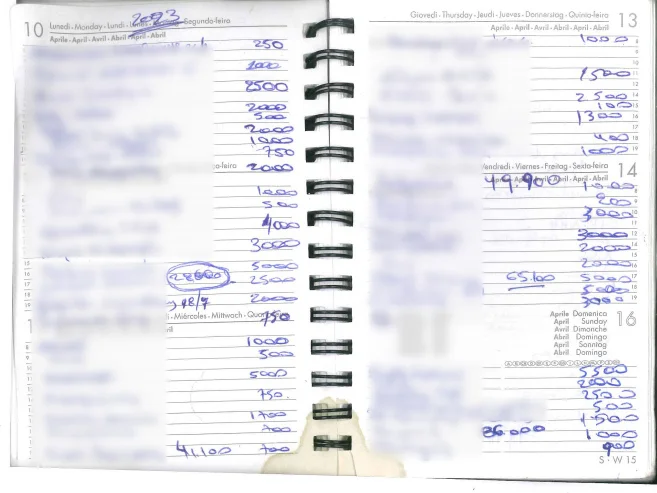 10 Lunedì - Monday - Lundi - Lunes - Segunda-feira
2023
Aprile - April - Avril - Abril - April - Abril
250
1000
2500
2000
500
2000
1000
750
2000
1000
500
4000
3000
5000
28500
2500
2000
18/7
Miércoles - Mittwoch - Quar
750
1000
500
5000
750
1700
700
41,100 700
Giovedì - Thursday - Jeudi - Jueves - Donnerstag - Quinta-feira 13
Aprile - April - Avril - Abril - April - Abril
1000
1500
2500
100
1300
400
1000
Vendredi - Viernes - Freitag - Sexta-feira 14
April - Abril
49.900
200
3000
3000
2000
2000
65.100 5000
5000
3000
Aprile Domenica 16
April Sunday
Avril Dimanche
Abril Domingo
April Sonntag
Abril Domingo
5500
2000
2500
500
1500
86.000 1000
900
S - W 15